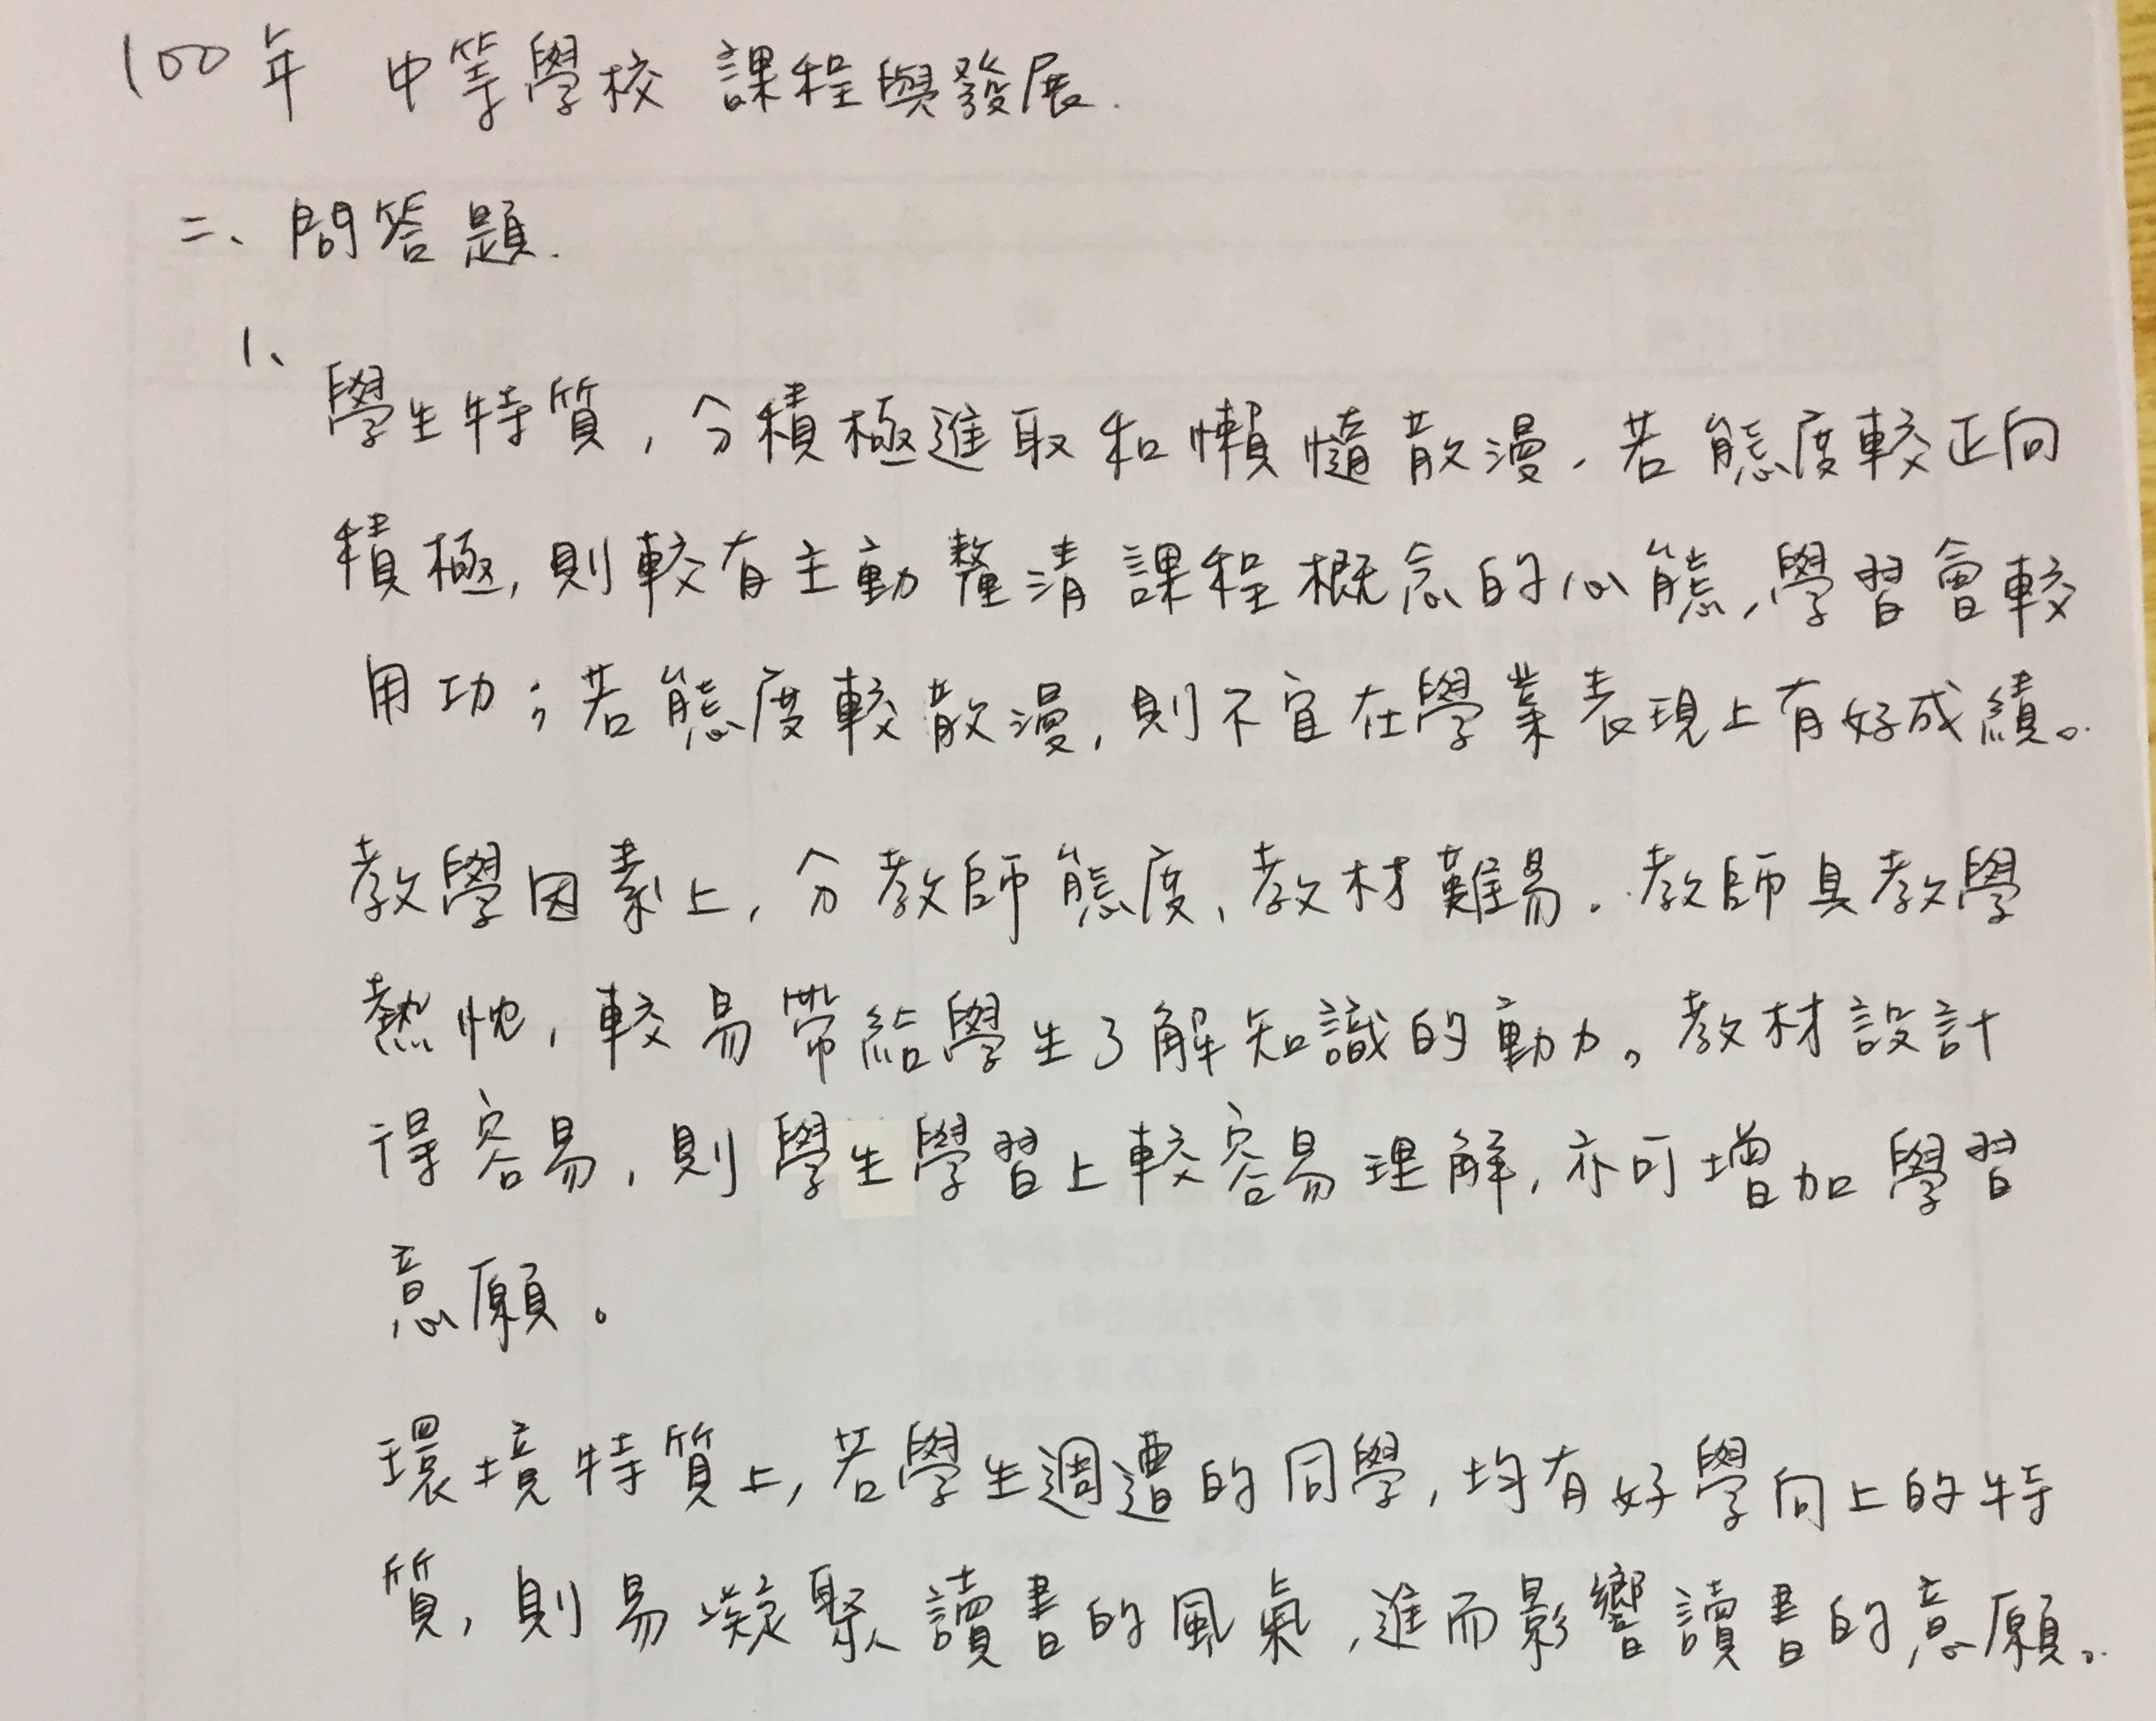 100年 中等學校 課程與發展.
二、問答題.
1、
學生特質,分積極進取和懶惰散漫。若態度較正向
積極,則較有主動釐清課程概念的心態,學習會較
用功;若態度較散漫,則不宜在學業表現上有好成績。
教學因素上,分教師態度、教材難易。教師具教學
熱忱,較易帶給學生了解知識的動力。教材設計
得容易,則學生學習上較容易理解,亦可增加學習
意願。
環境特質上,若學生週遭的同學,均有好學向上的特
質,則易凝聚讀書的風氣,進而影響讀書的意願。